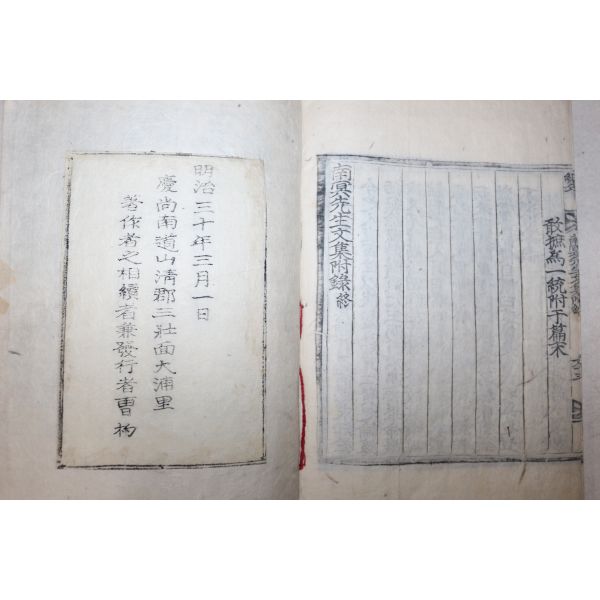 敢摭為一統附于篇末
南冥先生文集附錄終
明治三十年三月一日
慶尚南道山淸郡三壯面大浦里
著作者之相續者兼發行者曺